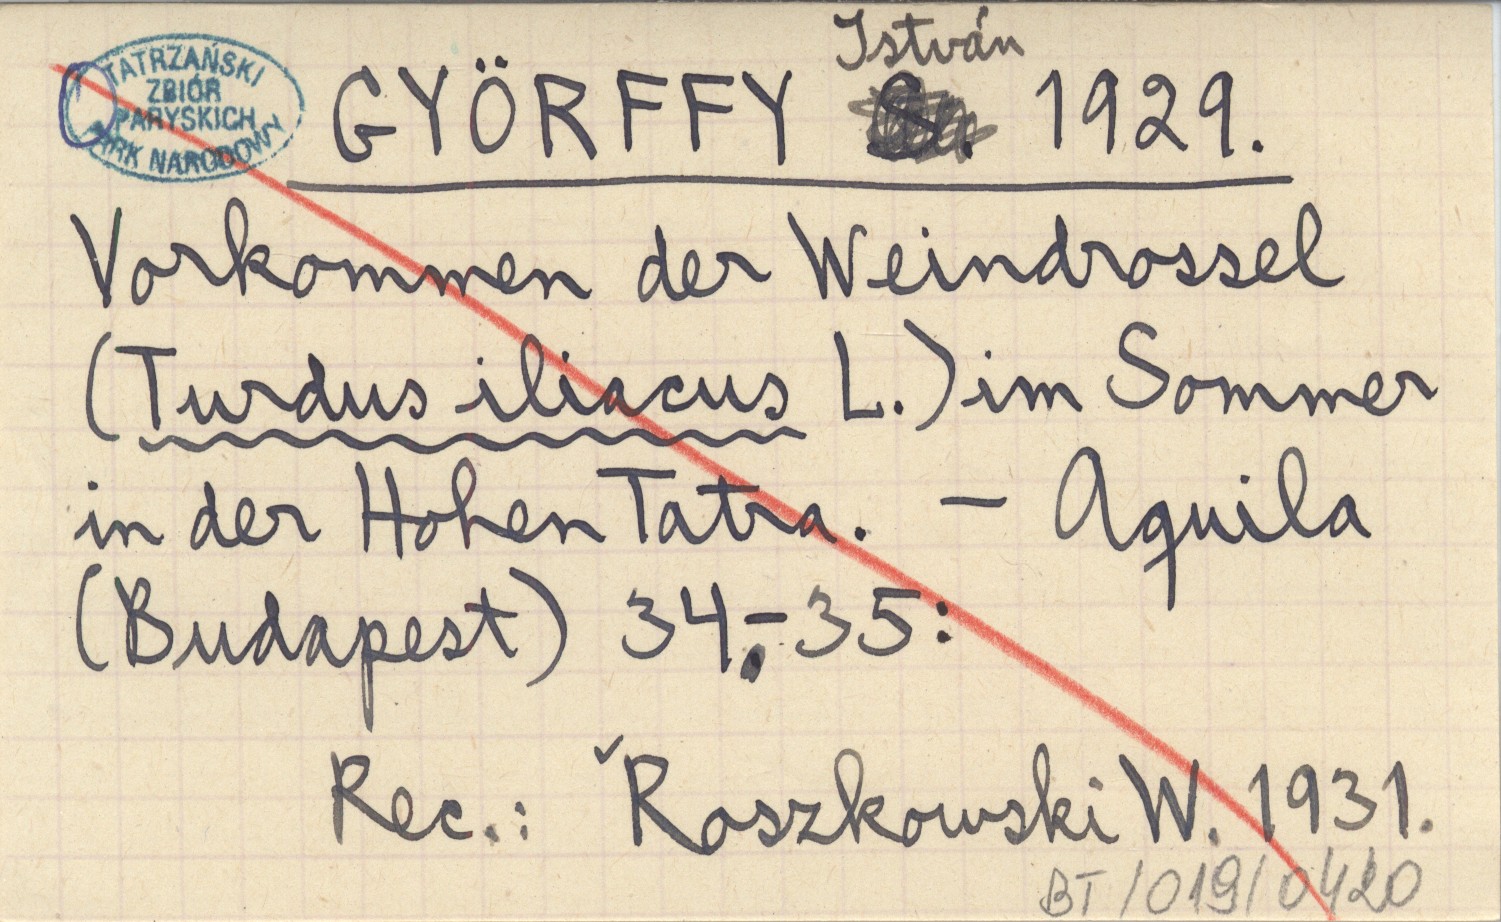 TATRZAŃSKI
ZBIÓR
PARYSKICH
PARK NARODOWY
István
GYÖRFFY 1929.
Vorkommen der Weindrossel
(Turdus iliacus L.) im Sommer
in der Hohen Tatra. - Aquila
(Budapest) 34,-35:
Rec.: Roszkowski W. 1931.
BT/019/0420